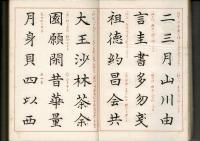 二三月山川由
言圭書多勿
祖德約昌會共
大王沙林茶余
圖願開昔華量
月身貝四以西